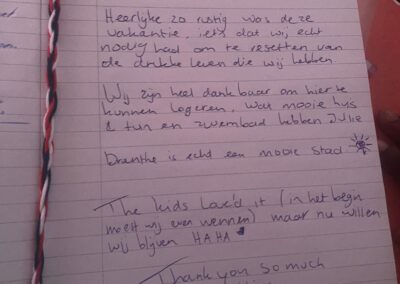 Heerlijke zo rustig was deze
vakantie, iets dat wij echt
nodig had om te resetten van
de drukke leven die wij hebben
Wij zijn heel dankbaar om hier te
kunnen logeren, wat mooie hys
& tuin en zwembad hebben Julie
Drenthe is echt een mooie stad
The kids Loved it (in het begin
moest wij even wennen) maar nu willen
wij blijven HAHA
Thank you so much